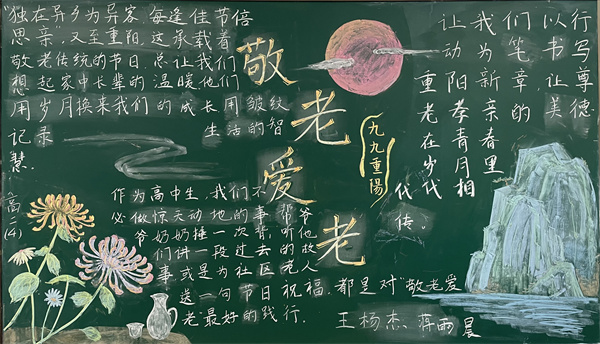 "独在异乡为异客，每逢佳节倍
思亲"又至重阳，这承载着
敬老传统的节日，总让我们
想起家中长辈的温暖他们
用岁月换来我们的成长用皱纹
记录生活的智
慧.
敬老爱老
九九重陽
让我们以行
动为笔书写
重阳新章，让尊
老孝亲的美德
在青春里
岁月相
代代
传。
作为高中生，我们不
必做惊天动地的事，帮爷
爷奶奶捶一次背，去听他
们讲一段过去的故
事或是为社区老人
送一句节日祝福，都是对"敬老爱
老"最好的践行.
高一(4)
王杨杰 蒋雨晨